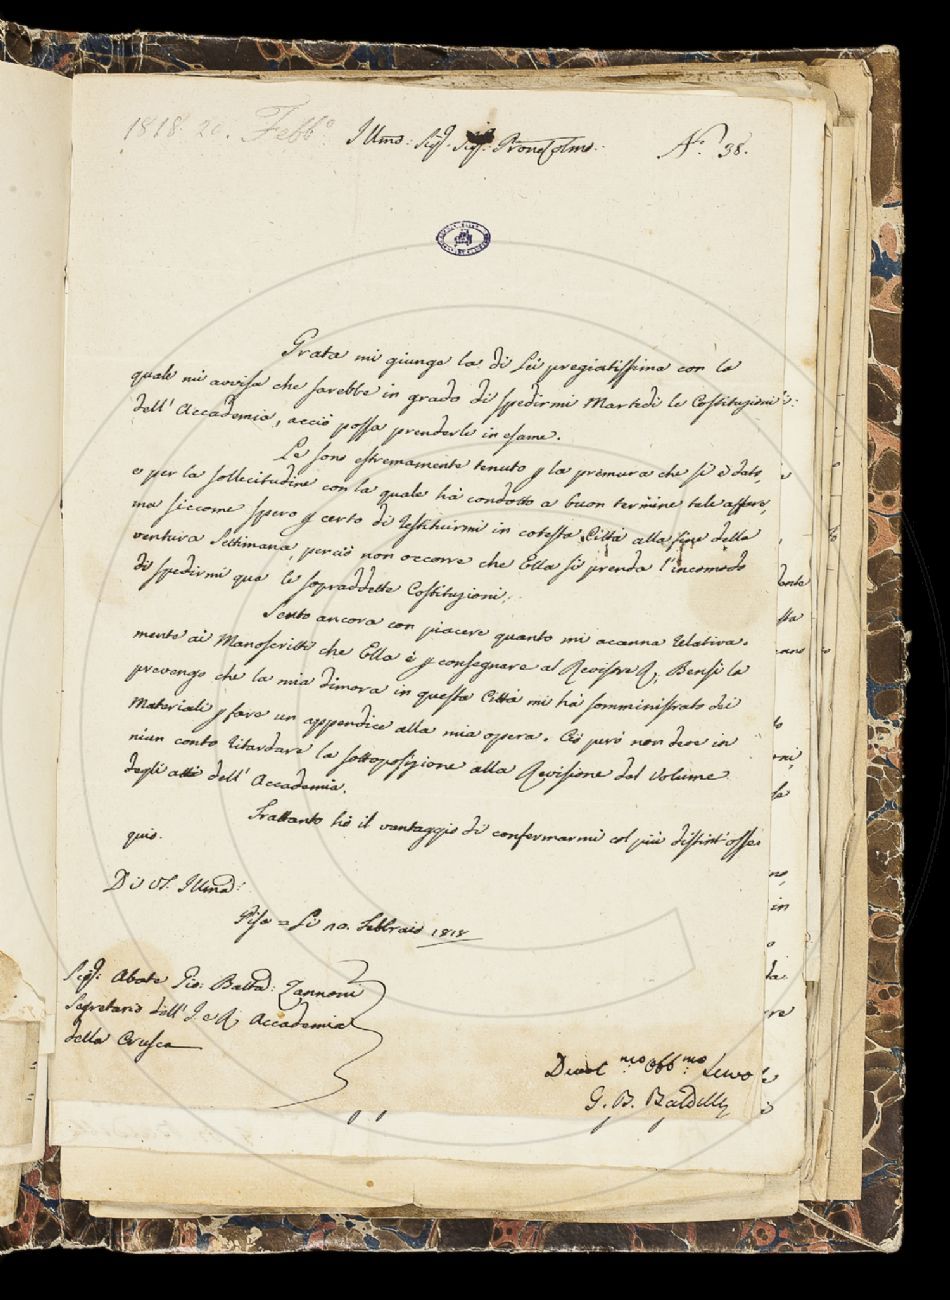 1818. 20. Febb.o
Illmo: Sig: Sig: Prone Colmo.
N.o 38.
Grata mi giunge la di Lei pregiatissima con la
quale mi avvisa che sarebbe in grado di spedirmi Martedi le Costituzioni
dell' Accademia, acciò possa prenderle in esame.
Le sono estremamente tenuto p la premura che si è data,
e per la sollecitudine con la quale ha condotto a buon termine tale affare,
ma siccome spero p certo di restituirmi in cotesta Città alla fine della
ventura Settimana, perciò non occorre che Ella si prenda l'incomodo
di spedirmi qua le sopraddette Costituzioni.
Sento ancora con piacere quanto mi accenna relativa-
mente ai Manoscritti che Ella è p consegnare al Bensì la
prevengo che la mia dimora in questa Città mi ha somministrato dei
Materiali p fare un appendice alla mia opera. Ciò però non deve in
niun conto ritardare la sottoposizione alla Revisione del Volume
degli atti dell' Accademia.
Frattanto ho il vantaggio di confermarmi col più distint'osse-
quio.
Di VS. Illma:
Pisa = Li 20. Febbraio 1818
Sig: Abate Gio: Batta: Zannoni
Segretario dell' I. e R. Accademia
della Crusca
Devot mo Obb mo Servo
G. B. Baldelli